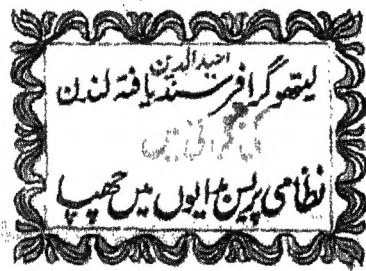 احید الدین
لیتھو گرافر سند یافتہ لندن
کی نگرانی میں
نظامی پریس بدایوں میں چھپا